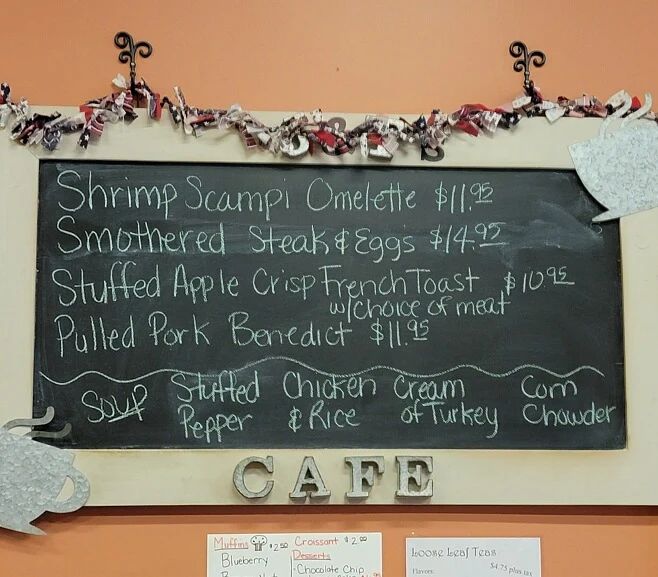 Shrimp Scampi Omelette $11.95
Smothered Steak & Eggs $14.95
Stuffed Apple Crisp French Toast $10.95
w/choice of meat
Pulled Pork Benedict $11.95
Soup
Stuffed Pepper
Chicken & Rice
Cream of Turkey
Corn Chowder
CAFE
Muffins $2.50
Blueberry
Croissant $2.00
Desserts
Chocolate Chip
Loose Leaf Teas
Flavors:
$4.75 plus tax